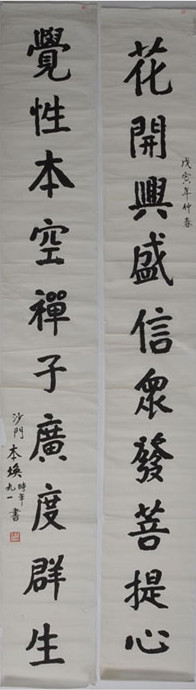 花開興盛信眾發菩提心
戊寅年仲春
覺性本空禪子廣度群生
沙門本煥時年九一書